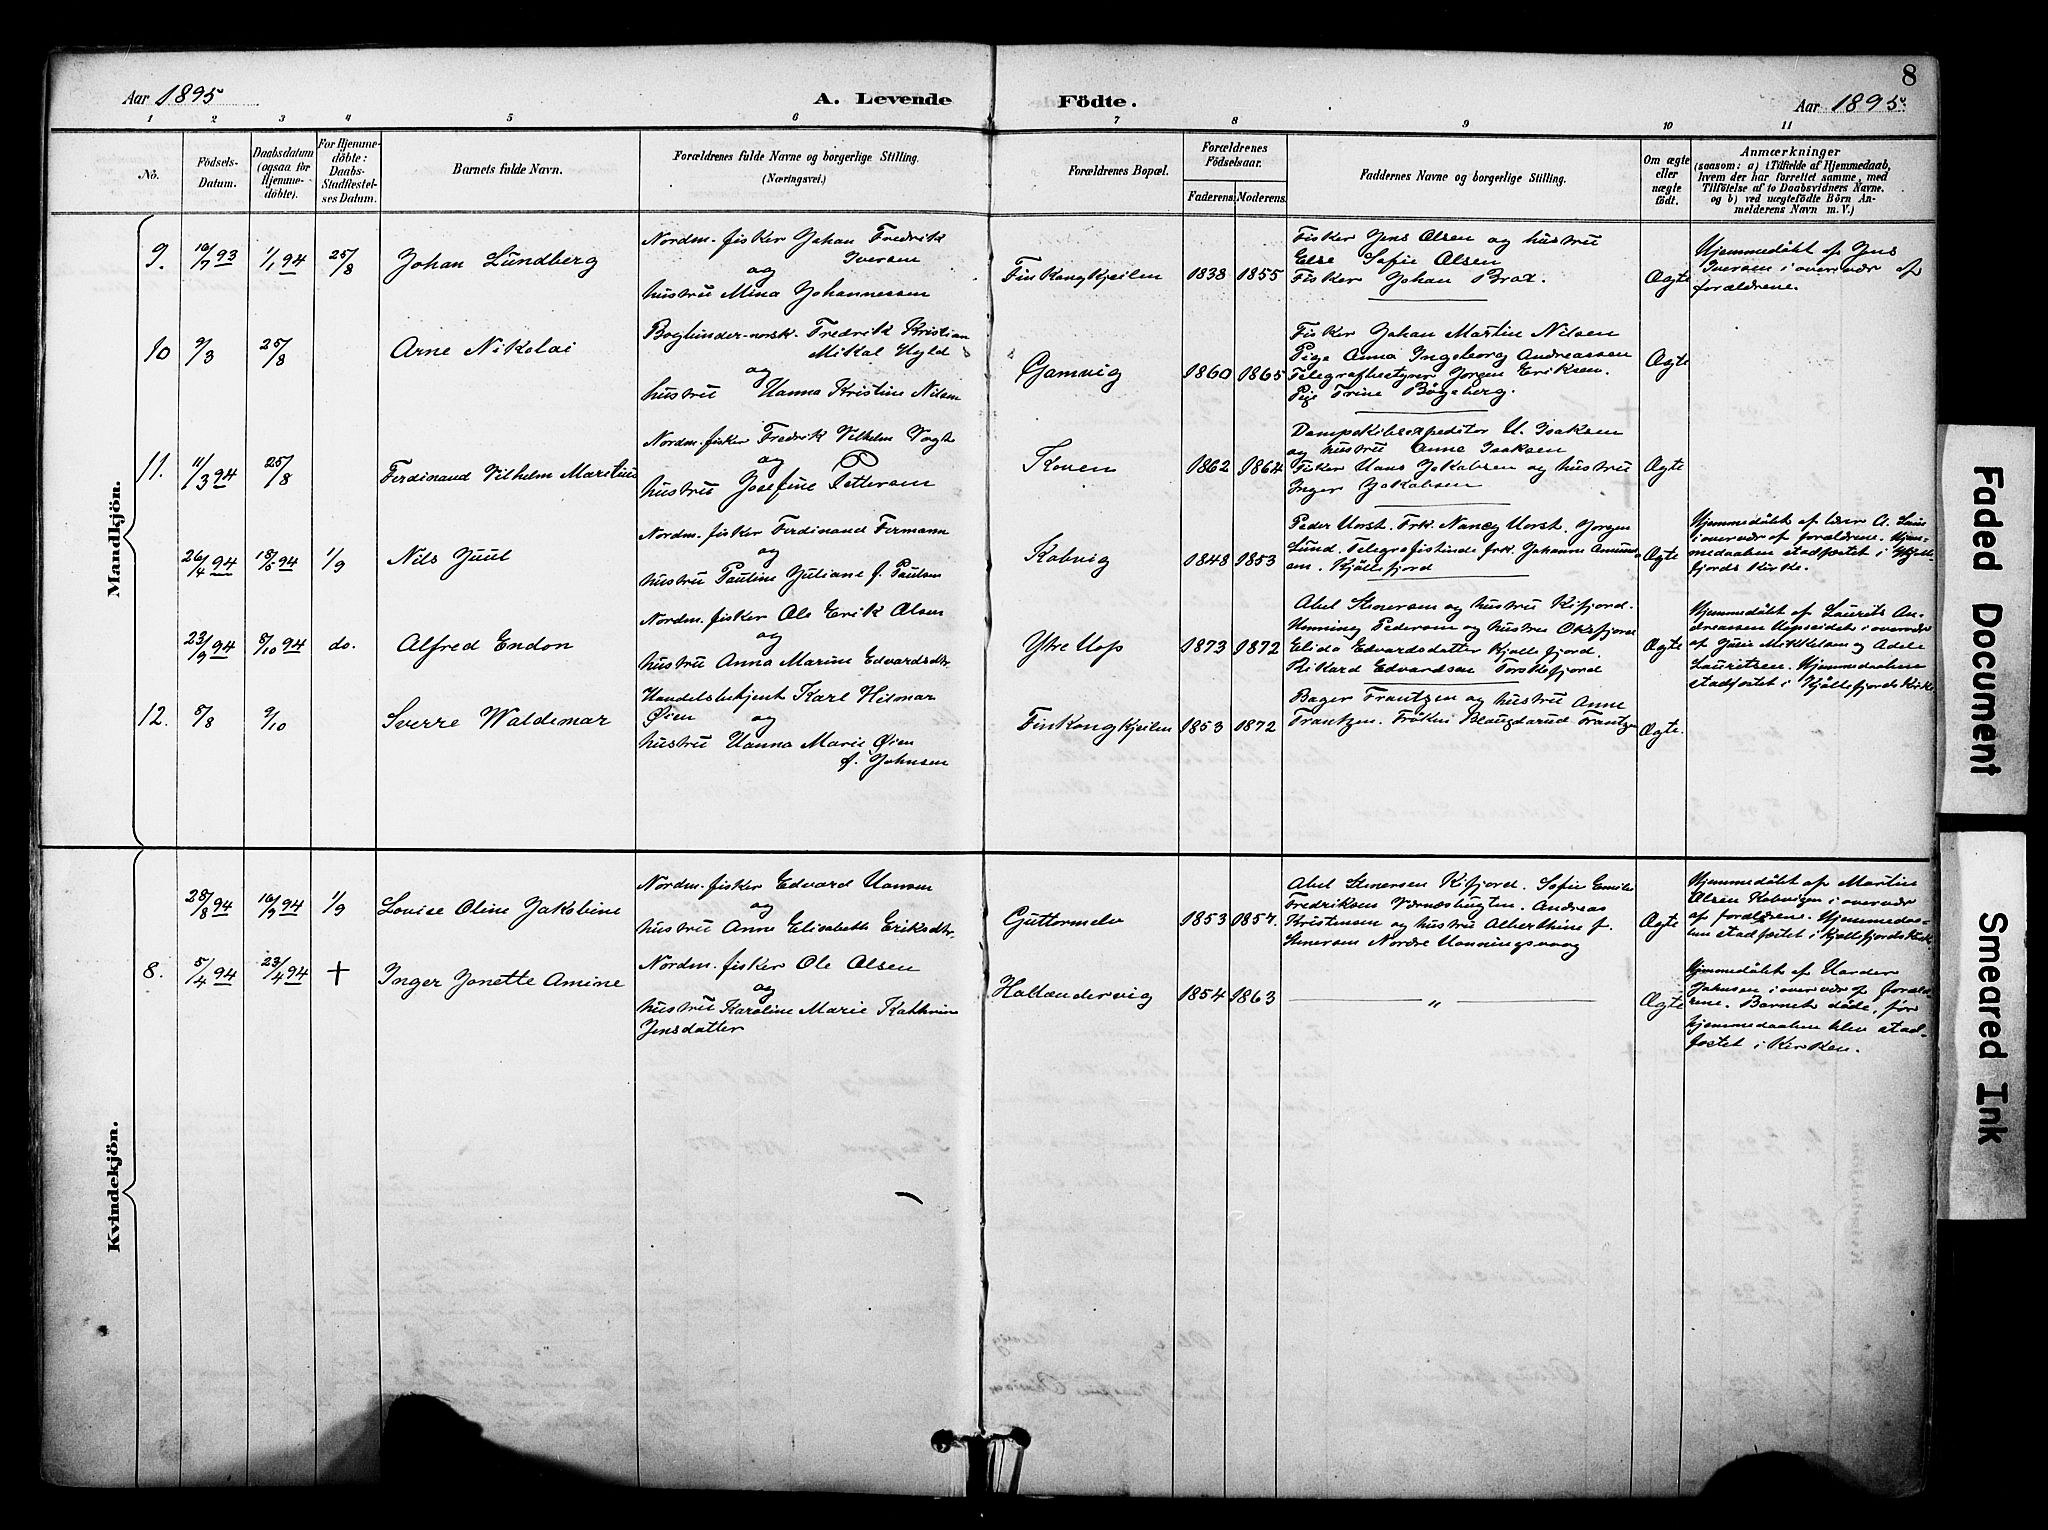 8
Aar 1895
A. Levende
Födte.
Aar 1895.
1 2 3 4 5 6 7 8 9 10 11
No.
Födsels-
Datum.
Daabsdatum
(ogsaa for
Hjemme-
döbte).
For Hjemme-
döbte:
Daabs-
Stadfæstel-
ses Datum.
Barnets fulde Navn.
Forældrenes fulde Navne og borgerlige Stilling.
(Næringsvei.)
Forældrenes Bopæl.
Forældrenes
Födselsaar.
Faderens. Moderens.
Faddernes Navne og borgerlige Stilling.
Om ægte
eller
uægte
födt.
Anmærkninger
(saasom: a) i Tilfælde af Hjemmedaab,
hvem der har forrettet samme, med
Tilföielse af to Daabsvidners Navne.
og b) ved uægtefödte Börn An-
melderens Navn m. V.)
Mandkjön.
9. 10/7 93 1/1 94 25/8 Johan Lundberg
Nordm. fisker Johan Fredrik
Iversen
og
hustru Mina Johannessen
Finkongkjeilen 1838 1855
Fisker Jens Olsen og hustru
Else Sofie Olsen
Fisker Johan Brox.
Ægte
Hjemmedøbt af Jens
Iversen i overvær af
forældrene.
10 9/3 25/8 Arne Nikolai
Fredrik Kristian
Mikal Hyld
og
hustru Hanna Kristine Nilsen
Gamvig 1860 1865
Fisker Johan Martin Nilsen
Pige Anna Ingeborg Andreassen
Telegrafbestyrer Jørgen Eriksen.
Pige Trine Bøgeberg.
Ægte
11. 11/3 94 25/8 Ferdinand Vilhelm Maritius
Nordm. fisker Fredrik Vilhelm Vogt
og
hustru Josefine Pettersen
Koven 1862 1864
Dampskibsexpeditør H. Isaksen
og hustru Anne Isaksen
Fisker Hans Jakobsen og hustru
Inger Jakobsen
Ægte
26/4 94 18/5 94 1/9 Nils Juul
Nordm. fisker Ferdinand Fermann
og
hustru Pauline Juliane f. Paulsen
Kobvig 1848 1853
Peder Horst. Frk. Nancy Horst. Jørgen
Lund. Telegrafistinde frk. Johanne Amund-
sen. Kjøllefjord
Ægte
Hjemmedøbt af lærer A. Laus
i overvær af forældrene. Hjem-
medaaben stadfæstet i Kjølle-
fjords Kirke.
23/9 94 8/10 94 do. Alfred Endon
Nordm. fisker Ole Erik Olsen
og
hustru Anna Marine Edvardsdtr
Ytre Hop 1873 1872
Abel Stenersen og hustru Kifjord.
Henning Pedersen og hustru Oksfjord
Elida Edvardsdatter Kjøllefjord.
Rikard Edvardsen Torskefjord
Ægte
Hjemmedøbt af Laurits An-
dreassen Hopseidet i overvær
af Mikkelsen og Adele
Lauritsen. Hjemmedaaben
stadfæstet i Kjøllefjords Kirke
12. 8/8 9/10 Sverre Waldemar
Handelsbetjent Karl Hilmar
Øien og
hustru Hanna Marie Øien
f. Johnsen
Finkongkjeilen 1853 1872
Bager Frantzen og hustru Anne
Frantzen. Frøken Frantzen
Ægte.
Kvindekjön.
28/8 94 16/9 94 1/9 Louise Oline Jakobine
Nordm. fisker Edvard Hansen
og
hustru Anne Elisabeth Eriksdtr.
Guttormelv 1853 1857.
Abel Stenersen Kifjord. Sofie Emilie
Fredriksen Værneshugten. Andreas
Kristensen og hustru Alberthine f.
Stenersen Nordre Honningsvaag
Ægte
Hjemmedøbt af Martin
Olsen Kobvigen i overvær
af forældrene. Hjemmedaa-
ben stadfæstet i Kjøllefjords Kirke
8. 5/4 94 23/4 94 + Inger Jonette Amine
Nordm. fisker Ole Olsen
og
hustru Karoline Marie Kathrine
Jensdatter
Hollændervig 1854 1863
— " —
Ægte
Hjemmedøbt af Harder
Johnsen i overvær af foræld-
rene. Barnet døde, før
hjemmedaaben blev stad-
fæstet i Kirken.
Faded Document
Smeared Ink